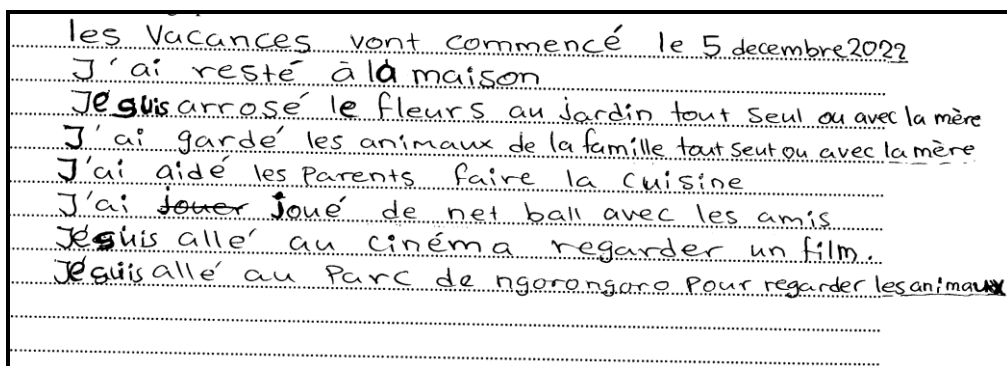 les Vacances vont commencé le 5 decembre 2022
J'ai resté à la maison
Je suis arrosé le fleurs au jardin tout seul ou avec la mère
J'ai gardé les animaux de la famille tout seul ou avec la mère
J'ai aidé les Parents faire la cuisine
J'ai jouer joué de net ball avec les amis
Je suis allé au cinéma regarder un film.
Je suis allé au Parc de ngorongoro Pour regarder les animaux